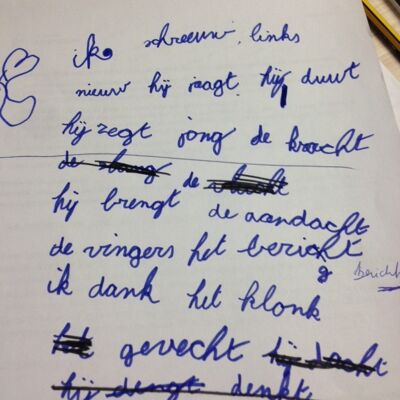 ik schreeuw, links
nieuw hij jaagt hij duwt
hij zegt jong de kracht
de slang de slacht
hij brengt de aandacht
de vingers het bericht
bericht
ik dank het klonk
het gevecht hij dacht
hij dengt denkt